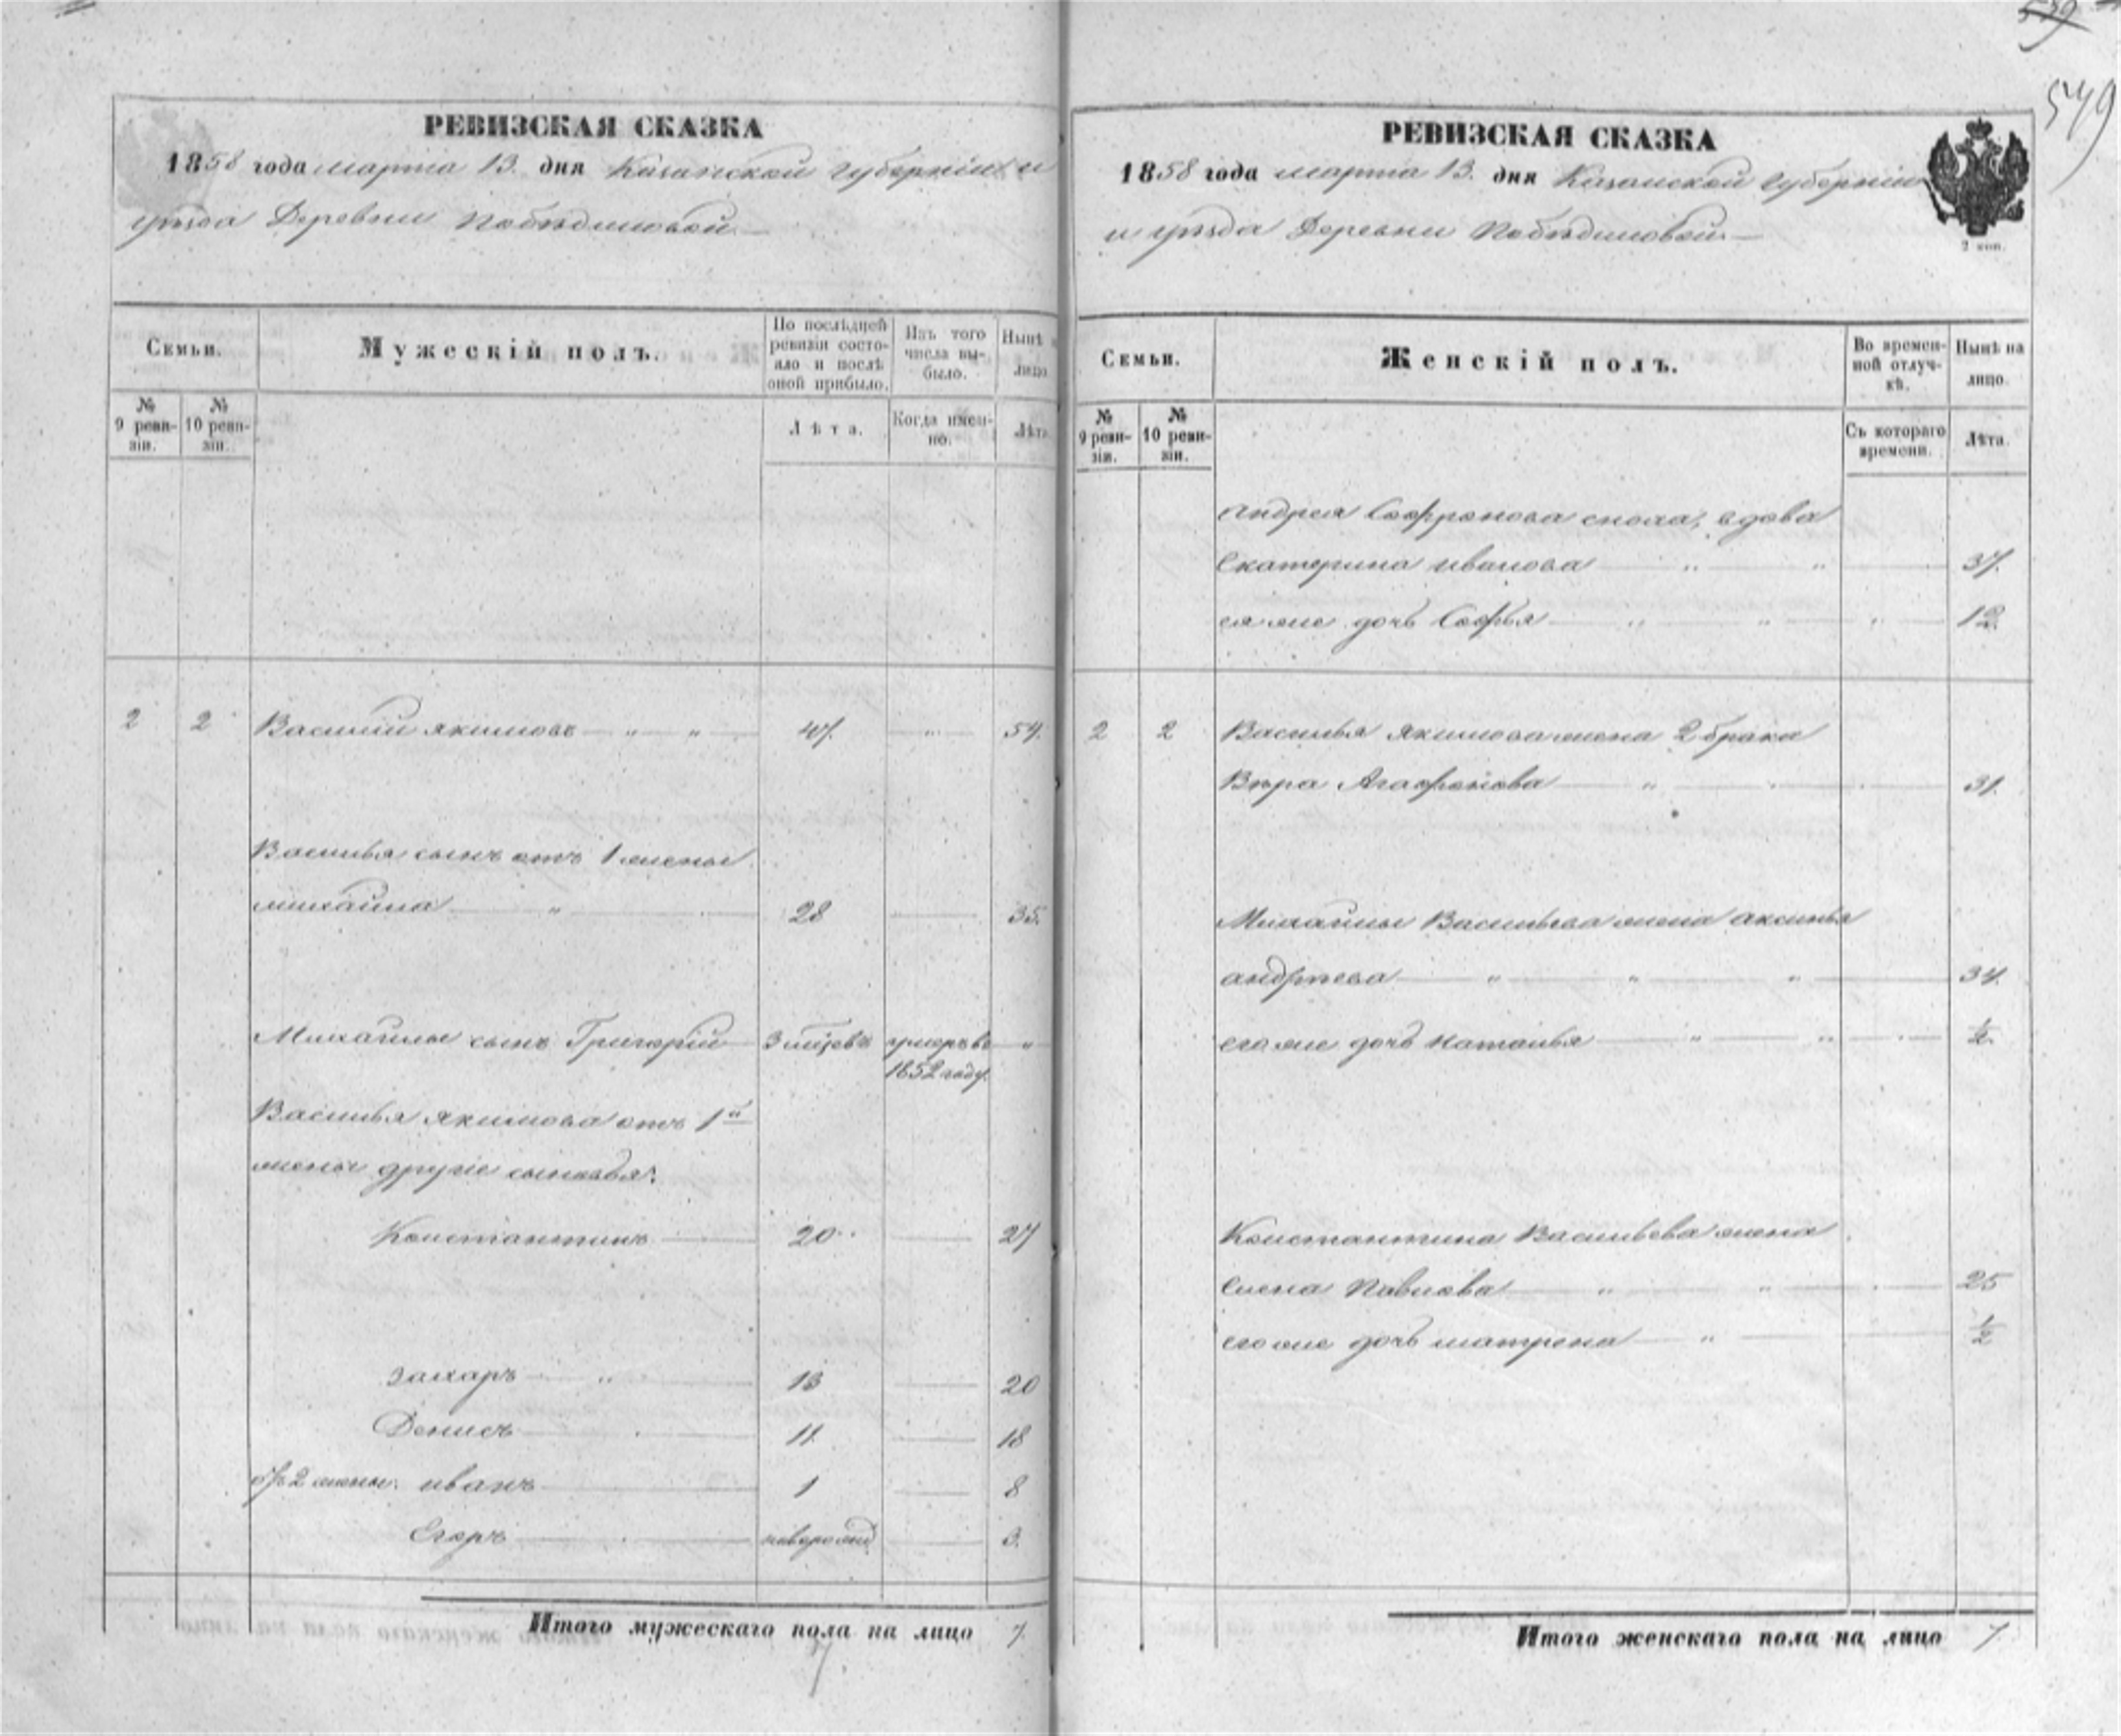 549
РЕВИЗСКАЯ СКАЗКА
1858 года марта 13. дня Казанской губерніи и
уѣзда Деревни Побѣдиловой
Семьи.
Мужескій полъ.
По послѣдней ревизіи состояло и послѣ оной прибыло.
Изъ того числа выбыло.
Нынѣ лицо
№ 9 ревизіи.
№ 10 ревизіи.
Лѣта.
Когда именно.
Лѣта
2 2 Василій Якимовъ 47. 54.
Василья сынъ отъ 1 жены
Михайла 28 35.
Михайлы сынъ Григорій умеръ въ
1852 году.
Василья Якимова отъ 1й
жены другіе сыновья:
Константинъ 20 27
Захаръ 13 20
Денисъ 11 18
2 жены. Иванъ 1 8
Егоръ новорожд 3.
Итого мужескаго пола на лицо 7.
7
РЕВИЗСКАЯ СКАЗКА
1858 года марта 13. дня Казанской губерніи
и уѣзда Деревни Побѣдиловой
2 коп.
Семьи.
Женскій полъ.
Во временной отлучкѣ.
Нынѣ на лицо.
№ 9 ревизіи.
№ 10 ревизіи.
Съ котораго времени.
Лѣта.
Андрея Софронова сноха, вдова
Екатерина Иванова 37.
ея же дочь Софья 12.
2 2 Василья Якимова жена 2 брака
Вѣра Агафонова 31.
Михайлы Васильева жена Аксинья
Андрѣева 34.
его же дочь Наталья ½.
Константина Васильева жена
Елена Павлова 25
его же дочь Матрена ½
Итого женскаго пола на лицо 7